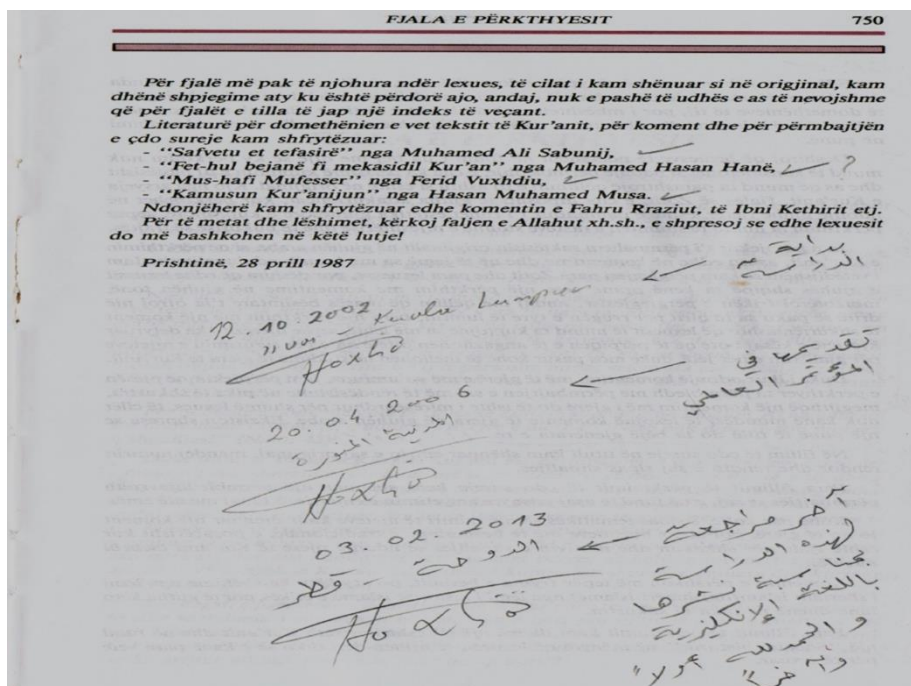 FJALA E PËRKTHYESIT 750
Për fjalë më pak të njohura ndër lexues, të cilat i kam shënuar si në origjinal, kam
dhënë shpjegime aty ku është përdorë ajo, andaj, nuk e pashë të udhës e as të nevojshme
që për fjalët e tilla të jap një indeks të veçant.
Literaturë për domethënien e vet tekstit të Kur'anit, për koment dhe për përmbajtjen
e çdo sureje kam shfrytëzuar:
- "Safvetu et tefasirë" nga Muhamed Ali Sabunij,
- "Fet-hul bejanë fi mekasidil Kur'an" nga Muhamed Hasan Hanë, ?
- "Mus-hafi Mufesser" nga Ferid Vuxhdiu,
- "Kamusun Kur'amijun" nga Hasan Muhamed Musa.
Ndonjëherë kam shfrytëzuar edhe komentin e Fahru Rraziut, të Ibni Kethirit etj.
Për të metat dhe lëshimet, kërkoj faljen e Allahut xh.sh., e shpresoj se edhe lexuesit
do më bashkohen në këtë lutje!
Prishtinë, 28 prill 1987
بداية
الدراسة
12.10.2002
Kuala Lumpur
Hoxha
تقديمها في
المؤتمر العالمي
20.04.2006
المدينة المنورة
Hoxha
آخر مراجعة
لهذه الدراسة
بمناسبة نشرها
باللغة الإنكليزية
والحمد لله أولا
وآخرا
03.02.2013
الدوحة - قطر
Hoxha